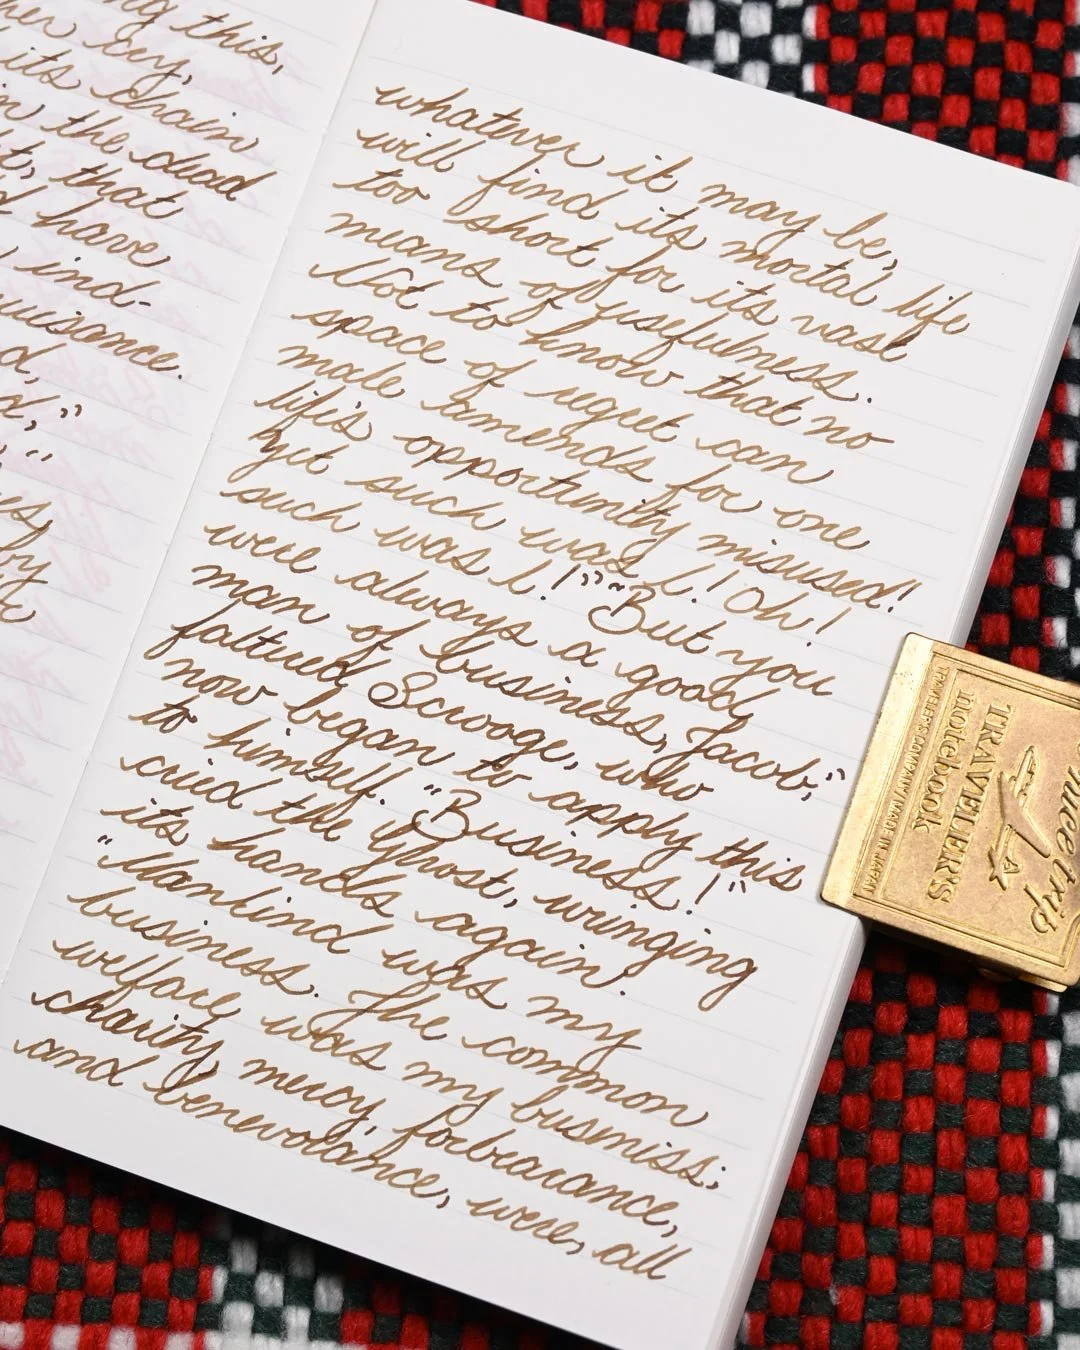 ng this,
her cry,
its chain
in the dead
t, that
d have
ind-
nuisance.
d,
d,"
whatever it may be,
will find its mortal life
too short for its vast
means of usefulness.
Not to know that no
space of regret can
made amends for one
life's opportunity misused!
Yet such was I! Oh!
such was I!" "But you
were always a good
man of business, Jacob,"
faltured Scrooge, who
now began to apply this
to himself. "Business!"
cried the Ghost, wringing
its hands again!
"Mankind was my
business. The common
welfare was my business;
charity, mercy, forbearance,
and benevolance, were, all
TRAVELER'S
notebook
TRAVELER'S COMPANY MADE IN JAPAN